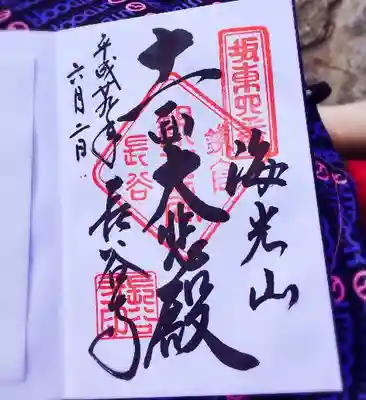 坂東四番
海光山
十一面大悲殿
長谷寺
平成廿九年
六月二日
鎌倉
長谷